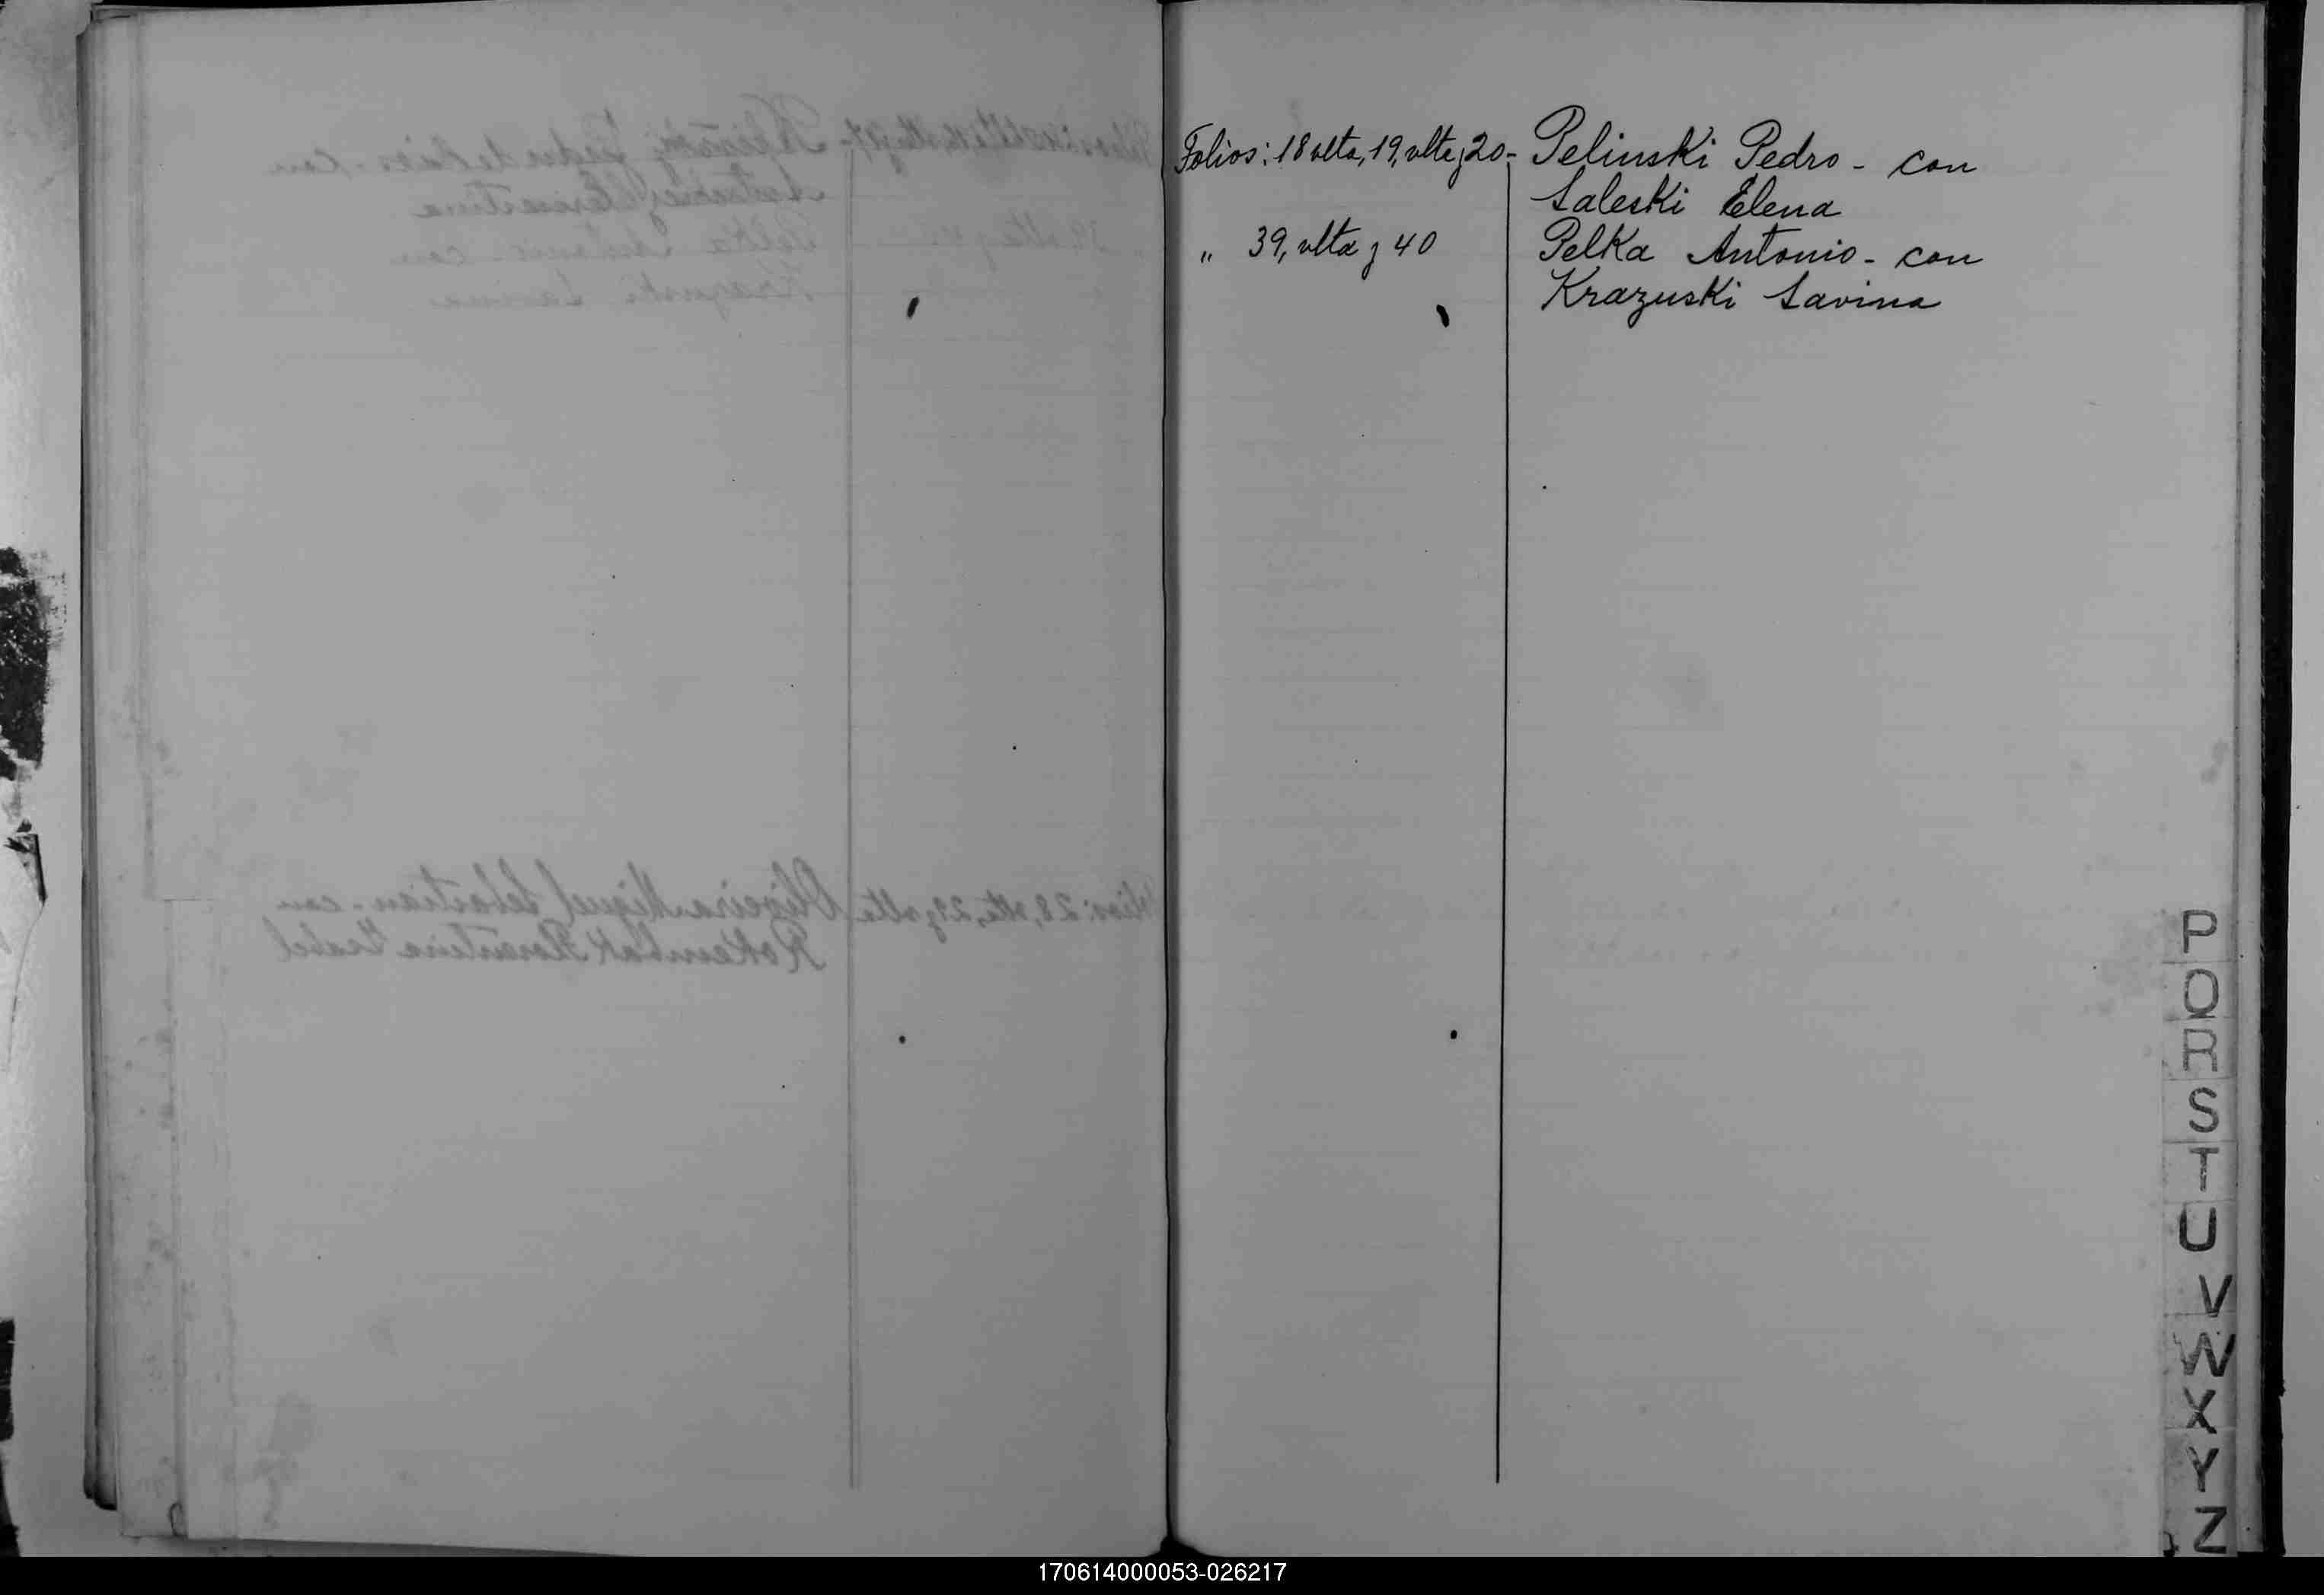 Folios: 18 vlta, 19, vlta y 20 - Pelinski Pedro - con
Saleski Elena
" 39, vlta y 40 Pelka Antonio - con
Krazuski Savina
P
Q
R
S
T
U
V
W
X
Y
Z
170614000053-026217